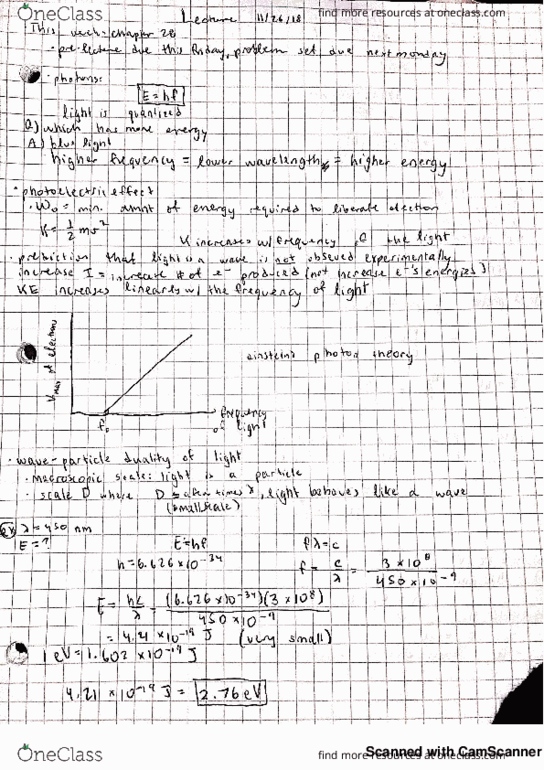 OneClass
find more resources at oneclass.com
Lecture 11/26/18
This week: chapter 28
· pre-lecture due this friday, problem set due next monday
· photons:
E=hf
light is quantized
Q) which has more energy
A) blue light
higher frequency = lower wavelength = higher energy
· photoelectric effect
· W₀ = min. amnt of energy required to liberate electron
K = 1/2 mv²
K increases w/ frequency of the light
· prediction that light is a wave is not observed experimentally
increase I = increase # of e⁻ produced (not increase e⁻'s energies)
KE increases linearly w/ the frequency of light
of electrons
einstein's photon theory
f₀
frequency
of light
· wave-particle duality of light
· macroscopic scale: light is a particle
· scale D where D is a few times λ, light behaves like a wave
(small scale)
ex λ=450 nm
E=?
E=hf
fλ=c
h=6.626×10⁻³⁴
f = c/λ = 3×10⁸/450×10⁻⁹
E = hc/λ = (6.626×10⁻³⁴)(3×10⁸)/450×10⁻⁹
= 4.21×10⁻¹⁹ J (very small)
1 eV=1.602×10⁻¹⁹ J
4.21×10⁻¹⁹ J = 2.76 eV
OneClass
find more resources at oneclass.com
Scanned with CamScanner